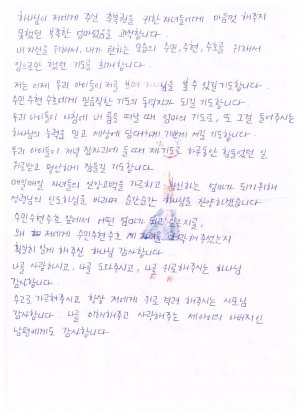 하나님이 저에게 주신 축복권을 위한 자녀들에게 마음껏 해주지
못했던 부족한 엄마였음을 고백합니다.
내 자신을 위해서, 내가 원하는 모습의 수민, 수현, 수호를 위해서
입으로만 했던 기도를 회개합니다.
저는 이제 우리 아이들이 저를 보며 하나님을 볼 수 있길 기도합니다.
수민 수현 수호에게 믿음직한 기도의 동역자가 되길 기도합니다.
우리 아이들이 아침에 내 품을 떠날 때 엄마의 기도로, 또 그걸 들어주시는
하나님의 능력을 믿고 세상에 담대하게 기쁘게 서길 기도합니다.
우리 아이들이 저녁 잠자리에 들 때 제 기도로 하루동안 힘들었던 일
위로받고 편안하게 잠들길 기도합니다.
매일매일 자녀들의 신앙고백을 가르치고 하는 엄마가 되기위해
성령님의 인도하심을 바라며 순간순간 하나님을 찬양하겠습니다.
수민수현수호 앞에서 어떤 엄마가 되고 싶은지를,
왜 저에게 수민수현수호 세 해주셨는지
확실히 알게 해주신 하나님 감사합니다.
나를 사랑하시고, 나를 도와주시고, 나를 위로해주시는 하나님
감사합니다.
수고로 가르쳐주시고 항상 저에게 위로 격려 해주시는 시모님
감사합니다. 나를 이해해주고 사랑해주는 세아이의 아버지인
남편에게도 감사합니다.